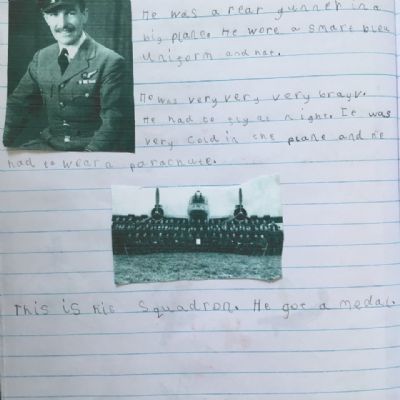 He was a rear gunner in a
big plane. He wore a smart bleu
uniform and hat.
He was very very very brayv.
He had to fly at night. It was
very cold in the plane and he
had to wear a parachute.
This is his Squadron. He got a medal.